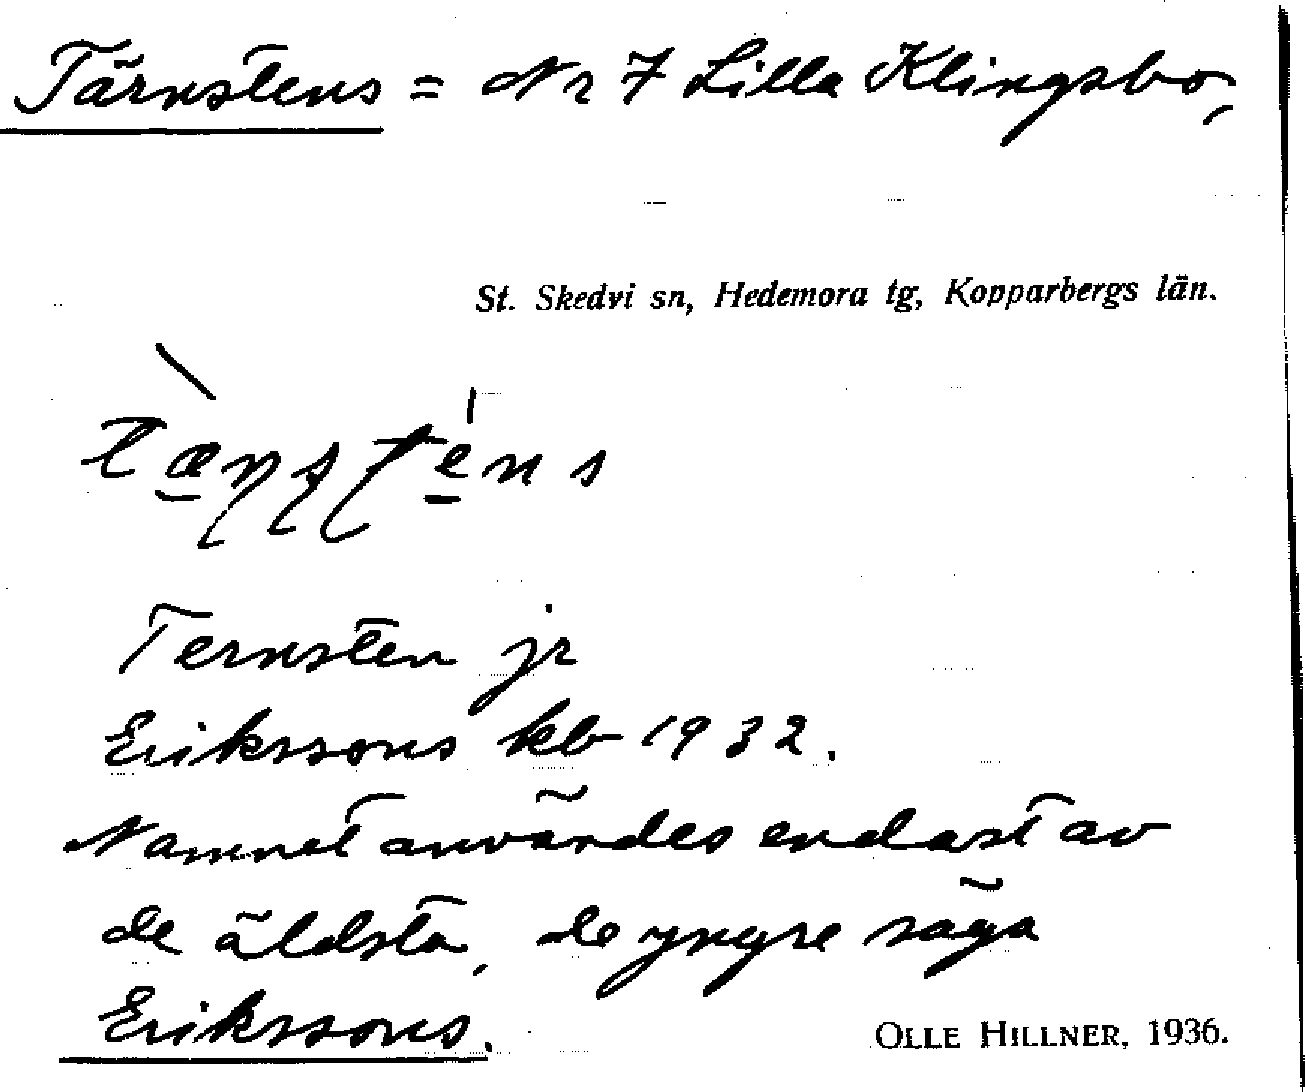 Tärnstens = Nr 7 Lilla Klingsbo,
St. Skedvi sn, Hedemora tg, Kopparbergs län.
Ternsten jr
Erikssons kb 1932.
Namnet användes endast av
de äldsta, de yngre säga
Erikssons.
OLLE HILLNER, 1936.